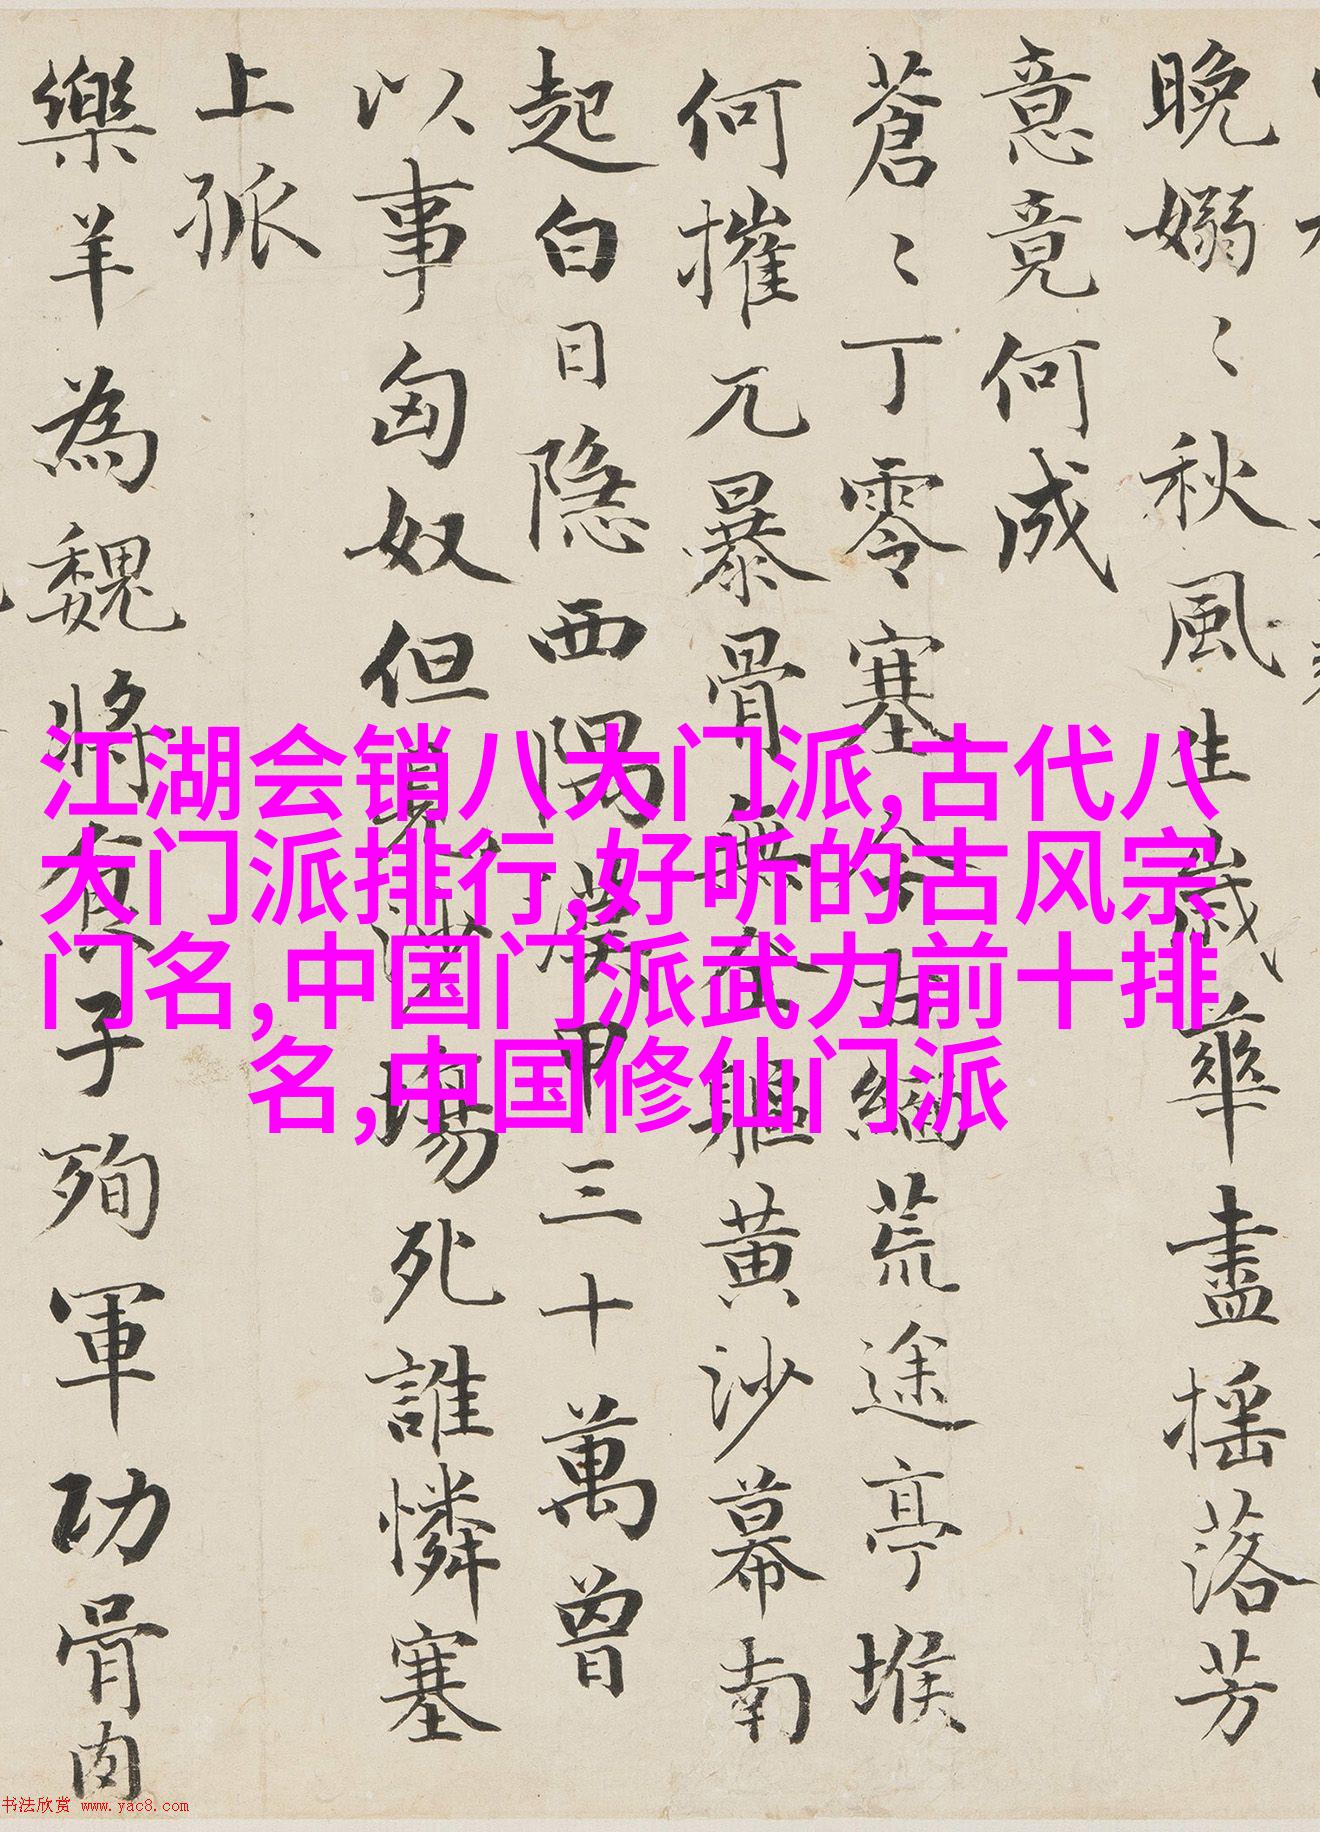 晚嫋〻秋風生歲華盡摇落芳
意竟何成
蒼〻丁零塞今古緬荒途亭堠
何摧兀暴骨無全軀黃沙幕南
起白日隐西隅漢甲三十萬曾
以事匈奴但見沙場死誰憐塞
上孤
樂羊為魏將食子殉軍功骨肉
江湖会销八大门派,古代八
大门派排行,好听的古风宗
门名,中国门派武力前十排
名,中国修仙门派
书法欣赏 www.yac8.com